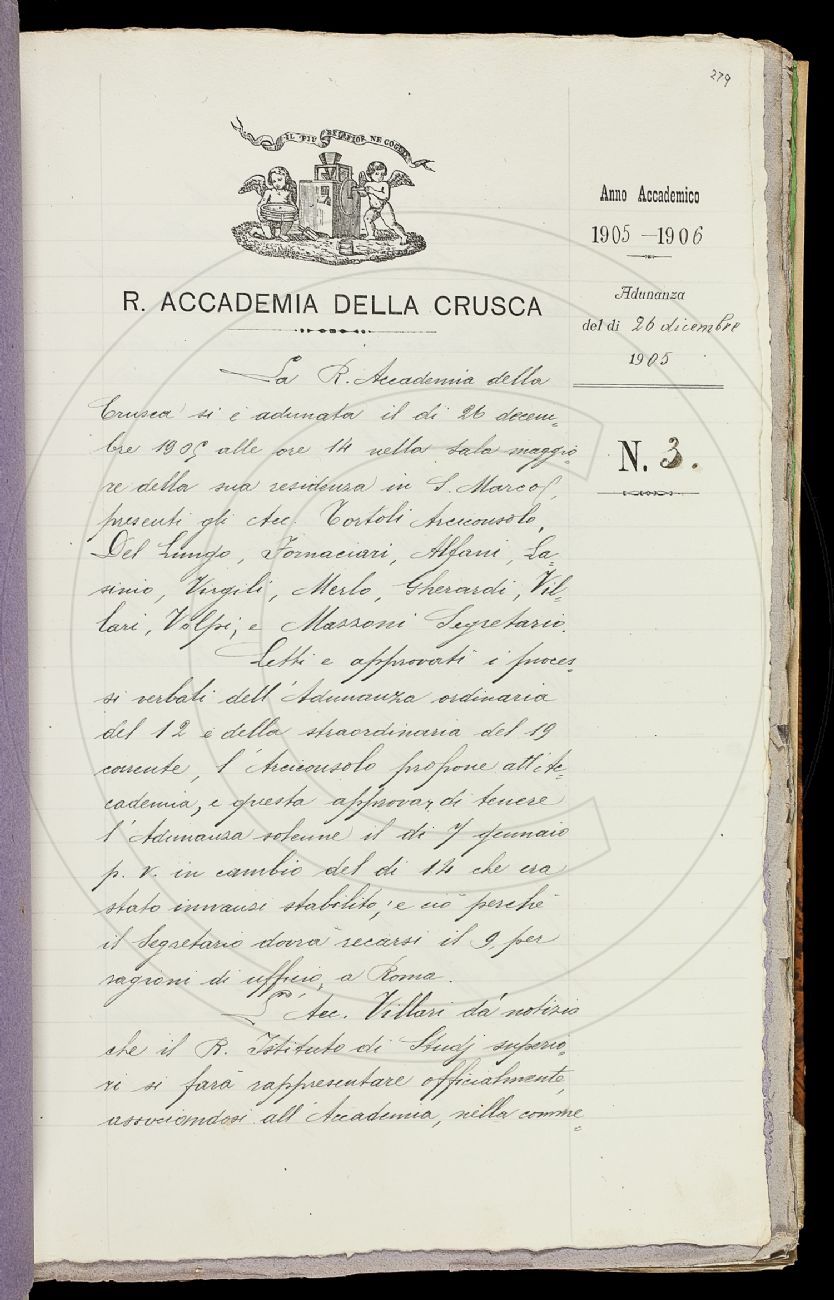 279
IL PIÙ BEL FIOR NE COGLIE
Anno Accademico
1905-1906
Adunanza
del dì 26 dicembre
1905
N. 3.
R. ACCADEMIA DELLA CRUSCA
La R. Accademia della
Crusca si è adunata il dì 26 decem=
bre 1905 alle ore 14 nella sala maggio=
re della sua residenza in S. Marco,
presenti gli Acc. Tortoli Arciconsolo,
Del Lungo, Fornaciari, Alfani, La=
sinio, Virgili, Merlo, Gherardi, Vil=
lari, Volpi, e Mazzoni Segretario.
Letti e approvati i proces=
si verbali dell'Adunanza ordinaria
del 12 e della straordinaria del 19
corrente, l'Arciconsolo propone all'Ac=
cademia, e questa approva, di tenere
l'Adunanza solenne il dì 7 gennaio
p. v. in cambio del dì 14 che era
stato innanzi stabilito; e ciò perchè
il Segretario dovrà recarsi il 9, per
ragioni di ufficio, a Roma.
L'Acc. Villari dà notizia
che il R. Istituto di Studj superio=
ri si farà rappresentare officialmente,
associandosi all'Accademia, nella comme=